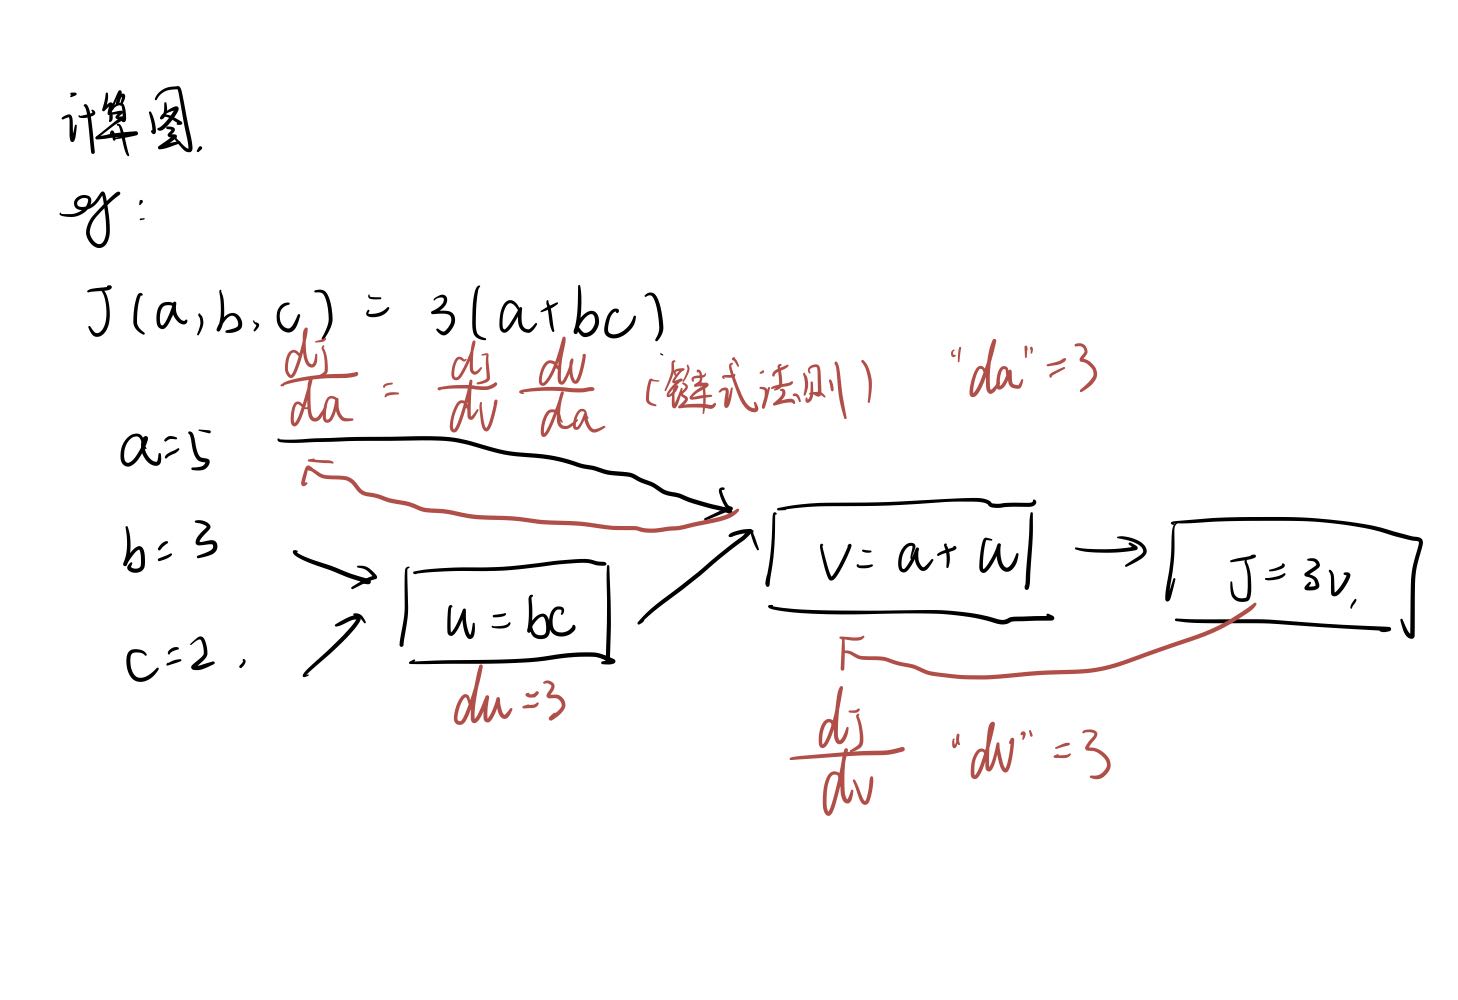 计算图.
eg:
J(a,b,c) = 3(a+bc)
dj/da = dj/dv dv/da (链式法则) "da"=3
a=5
b=3
c=2.
u=bc
du=3
v=a+u
J=3v.
dj/dv "dv"=3